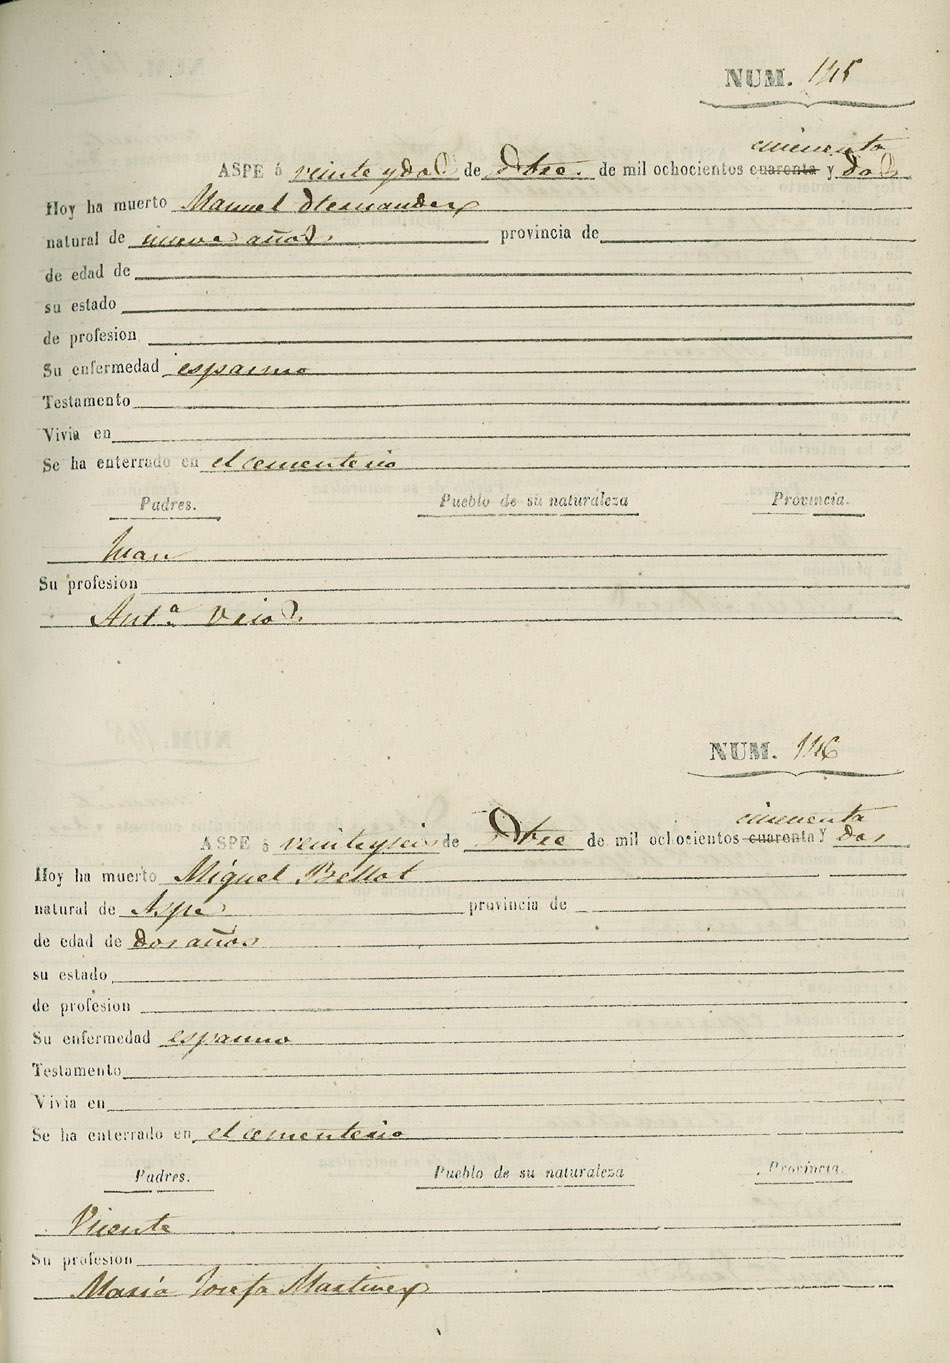 NUM. 145
cincuenta
ASPE á veinte y dos de Dbre. de mil ochocientos cuarenta y dos
Hoy ha muerto Manuel Hernandez
natural de nueve años. provincia de
de edad de
su estado
de profesion
Su enfermedad espasmo
Testamento
Vivia en
Se ha enterrado en el cementerio
Padres. Pueblo de su naturaleza Provincia.
Juan
Su profesion
Antª
NUM. 146
cincuenta
ASPE á veinteyseis de Dbre de mil ochocientos cuarenta y dos
Hoy ha muerto Miguel Bellot
natural de Aspe provincia de
de edad de dos años
su estado
de profesion
Su enfermedad espasmo
Testamento
Vivia en
Se ha enterrado en el cementerio
Padres. Pueblo de su naturaleza Provincia.
Vicente
Su profesion
Maria Josefa Martinez